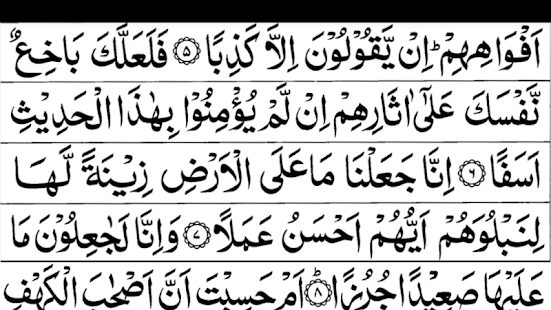 اَفْوَاهِهِمْ ؕ اِنْ يَّقُوْلُوْنَ اِلَّا كَذِبًا ۵ فَلَعَلَّكَ بَاخِعٌ
نَّفْسَكَ عَلٰۤى اٰثَارِهِمْ اِنْ لَّمْ يُؤْمِنُوْا بِهٰذَا الْحَدِيْثِ
اَسَفًا ۶ اِنَّا جَعَلْنَا مَا عَلَى الْاَرْضِ زِيْنَةً لَّهَا
لِنَبْلُوَهُمْ اَيُّهُمْ اَحْسَنُ عَمَلًا ۷ وَاِنَّا لَجٰعِلُوْنَ مَا
عَلَيْهَا صَعِيْدًا جُرُزًا ؕ ۸ اَمْ حَسِبْتَ اَنَّ اَصْحٰبَ الْكَهْفِ